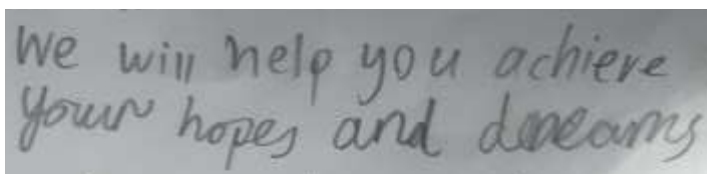 We will help you achieve
your hopes and dreams